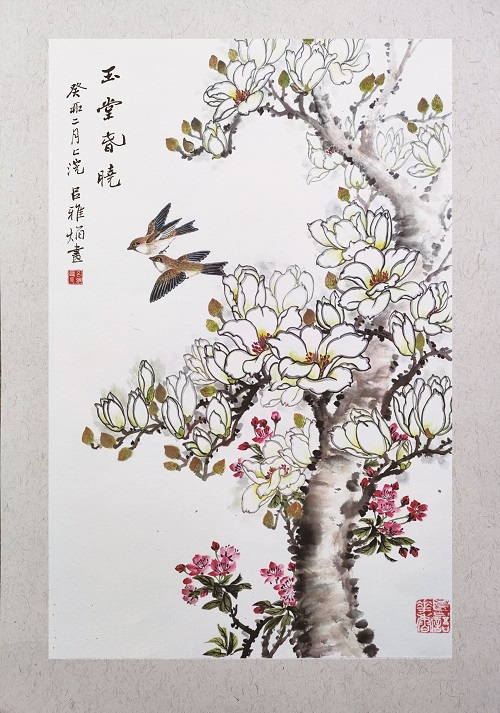 玉堂春曉
癸卯二月上浣 吕雅畫